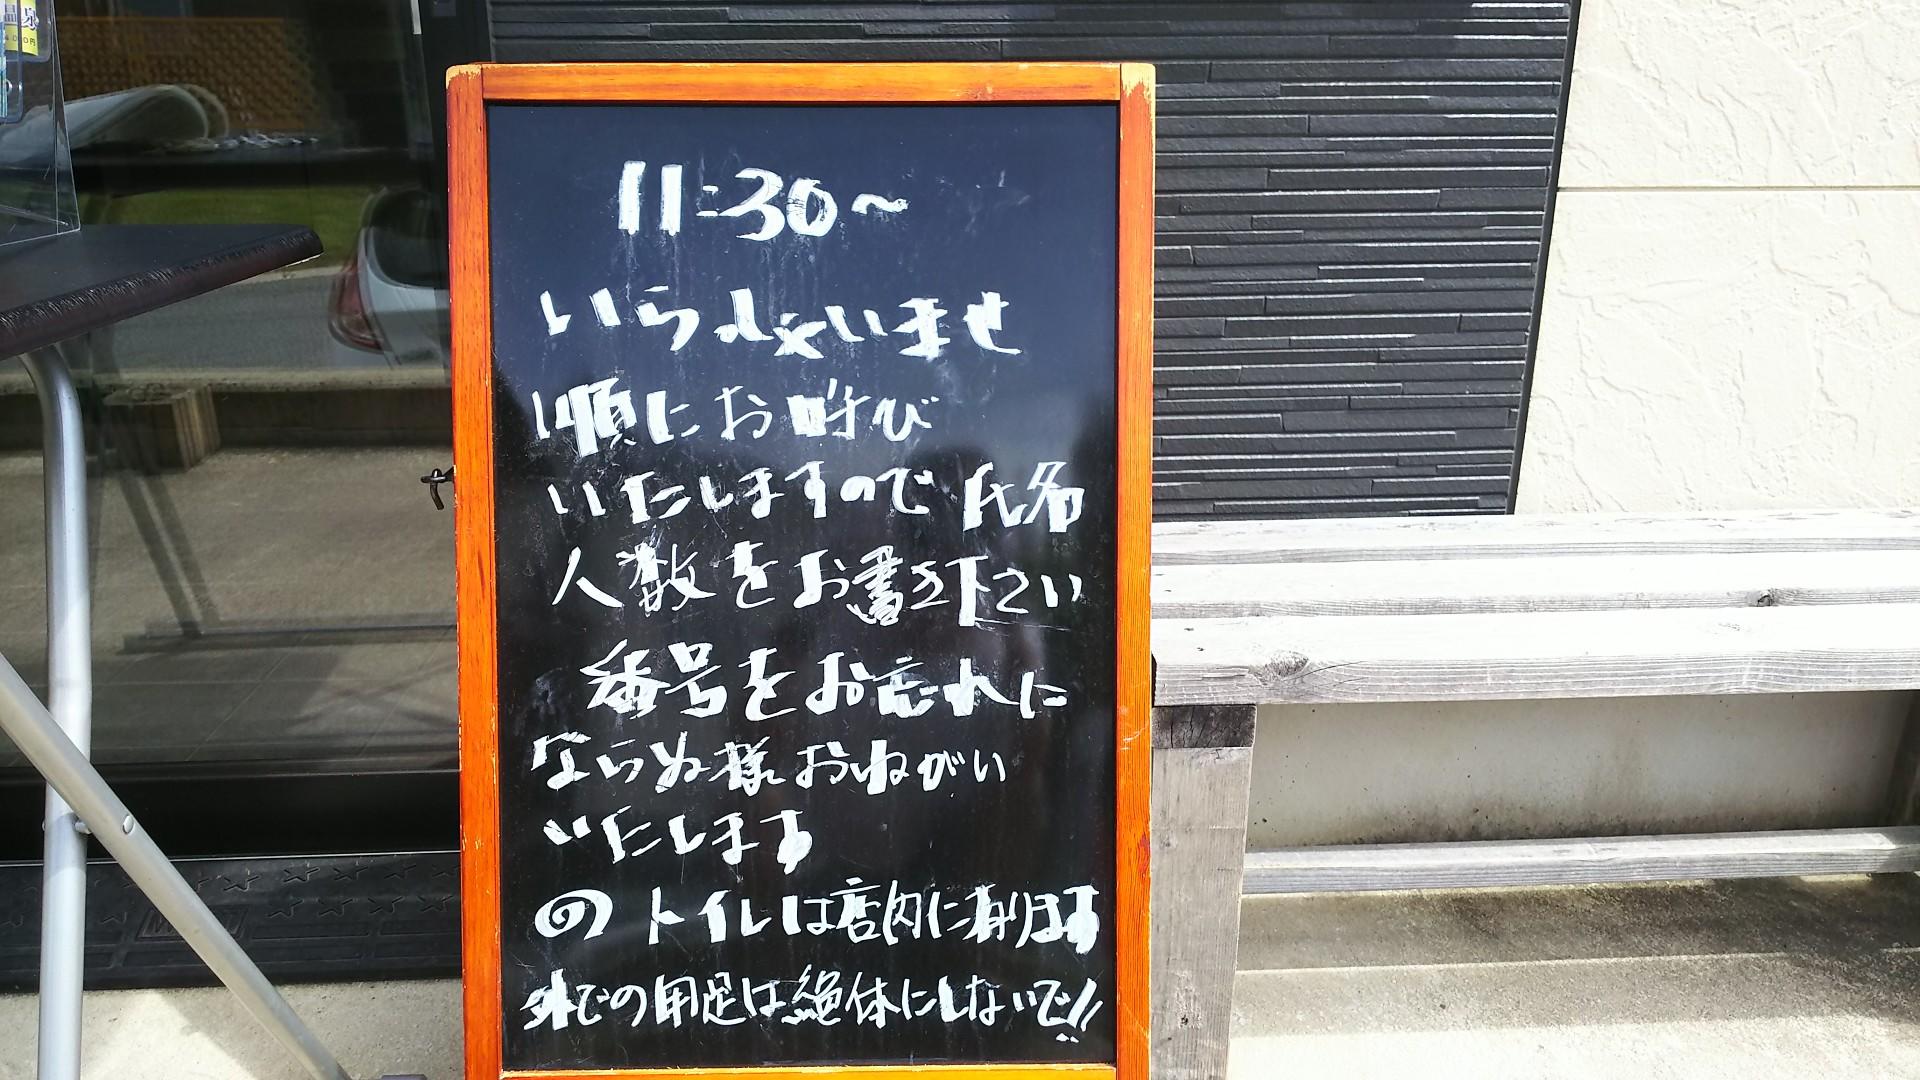 11:30~
いらっしゃいませ
順にお呼び
いたしますので 氏名
人数をお書き下さい
番号をお忘れに
ならぬ様おねがい
いたします
◎ トイレは店内に有ります
外での用足は絶体にしないで!!